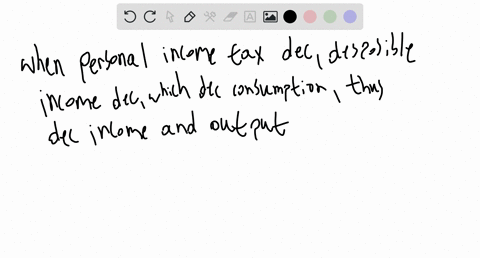 when personal income tax dec, desposible
income dec, which dec consumption, thus
dec income and output